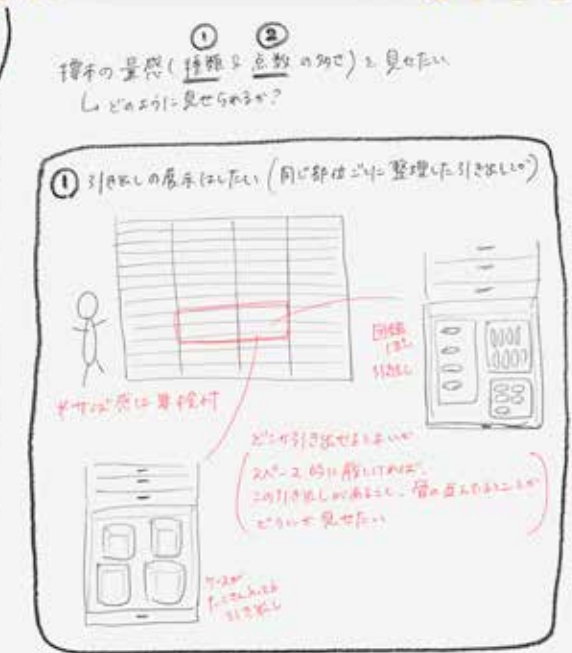 ① ②
標本の量感(種類&点数の多さ)を見せたい
↳どのように見せられるか?
① 引き出しの展示はしたい(同じ部位ごとに整理した引き出しとか)
図鑑
っぽい
引き出し
*サイズ感は要検付
どこか引き出せるとよいが
スペース的に難しければ、
この引き出しがあること、骨の並んでることが
どうにか見せたい
ケースが
たくさん入ってる
引き出し